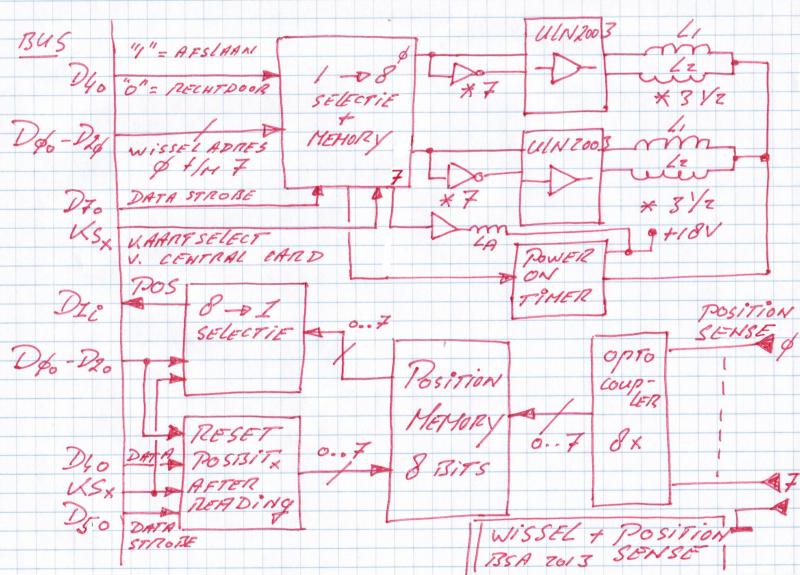 BUS
"1" = AFSLAAN
D4o
"0" = RECHTDOOR
Dϕo-D2ϕ
WISSEL ADRES
ϕ t/m 7
D7o
DATA STROBE
KSx
KAARTSELECT
V. CENTRAL CARD
1 → 8
ϕ
SELECTIE
+
MEMORY
7
* 7
ULN2003
L1
L2
* 3 1/2
* 7
ULN2003
L1
L2
* 3 1/2
LA
+18V
POWER
ON
TIMER
POS
D1i
8 → 1
SELECTIE
0..7
Dϕo-D2o
POSITION
MEMORY
8 BITS
OPTO
COUP-
LER
8x
POSITION
SENSE
ϕ
7
0..7
RESET
POSBITx
AFTER
READING
0..7
D4o
DATA
KSx
D5o
DATA
STROBE
WISSEL + POSITION
BSA 2013 SENSE